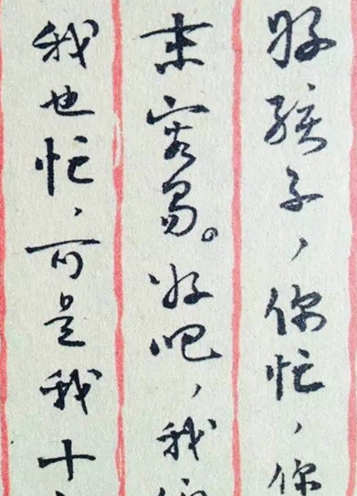 好孩子，你忙，你
来容易。好吧，我
我也忙，可是我十